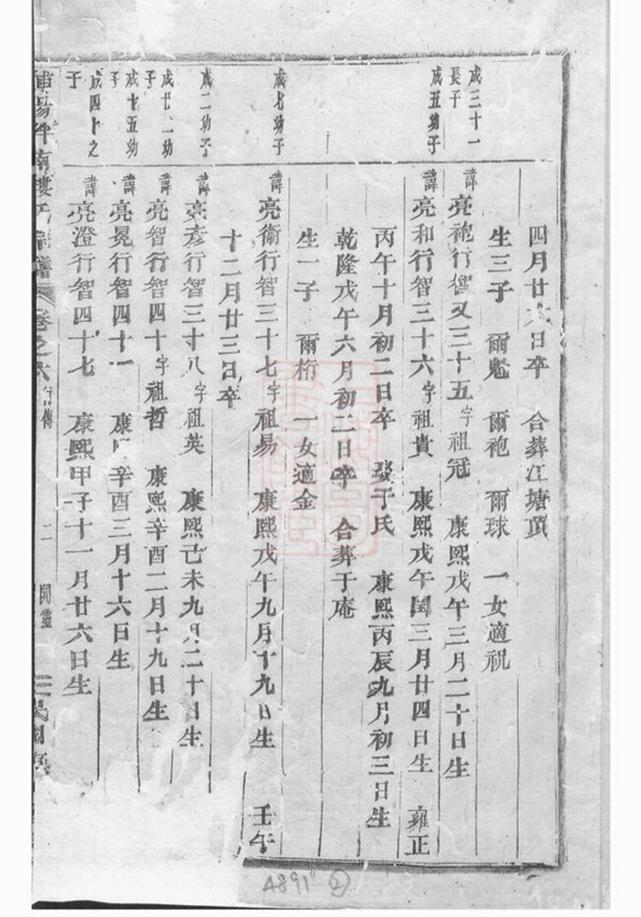 四月廿六日卒 合葬江塘頂
生三子 爾魁 爾袍 爾球 一女適祝
成三十一長子
諱亮袍行智又三十五字祖冠 康熙戊午三月二十日生
成五幼子
諱亮和行智三十六字祖貴 康熙戊午閏三月廿四日生 雍正
丙午十月初二日卒 娶于氏 康熙丙辰九月初三日生
乾隆戊午六月初二日卒 合葬于庵
生一子 爾桁 一女適金
成七幼子
諱亮衛行智三十七字祖易 康熙戊午九月十九日生 壬午
十二月廿三日卒
成二幼子
諱亮彥行智三十八字祖英 康熙己未九月二十日生
成廿一幼子
諱亮智行智四十字祖哲 康熙辛酉二月十九日生
成十五幼子
諱亮冕行智四十一 康熙辛酉三月十六日生
成四十之子
諱亮澄行智四十七 康熙甲子十一月廿六日生
南樓氏宗譜 卷之六 行傳
4891 ②